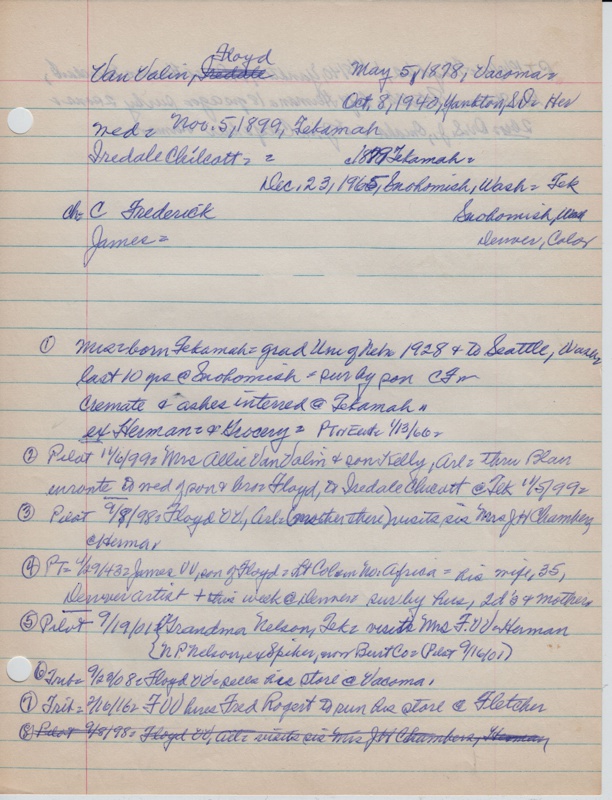 Floyd
Van Valin, Iredale May 5, 1878, Vacoma =
Oct, 8, 1940, Yankton, S.D. = Her
med = Nov. 5, 1899, Tekamah
Iredale Chilcott = = 1879 Tekamah =
Dec, 23, 1965, Snohomish, Wash = Tek
ch = C Frederick Snohomish, Wash
James = Denver, Color
① Mrs = born Tekamah = grad Uni of Nebr 1928 & to Seattle, Wash
last 10 yrs @ Snohomish = sur by son CF
Cremate & ashes interred @ Tekamah
ex Herman = & Grocery = PT 1/13/66 =
② Pilot 11/6/99 = Mrs Allie Van Valin & son Kelly, Arl = thru Blair
enroute to wed of son & bro = Floyd, to Iredale Chilcott @ Tek 11/5/99 =
③ Pilot 9/8/98 = Floyd VV, Arl = (mother there) visits sis Mrs J H Chambers
@ Herman
④ PT = 1/29/43 = James VV, son of Floyd = Lt Col in No. Africa = his wife, 35,
Denver artist + this week @ Denver = sur by hus, 2 d's & mother
⑤ Pilot 9/19/01 { Grandma Nelson, Tek = visits Mrs F. VV = Herman
{ N P Nelson, ex Spiker, Burt Co = Pilot 9/16/01 )
⑥ Trib = 9/23/08 = Floyd VV = sells his store @ Vacoma,
⑦ Trib = 2/16/16 = F VV hires Fred Rogert to run his store @ Fletcher
⑧ Pilot 9/8/98 = Floyd VV, Arl = visits sis Mrs J H Chambers, Herman